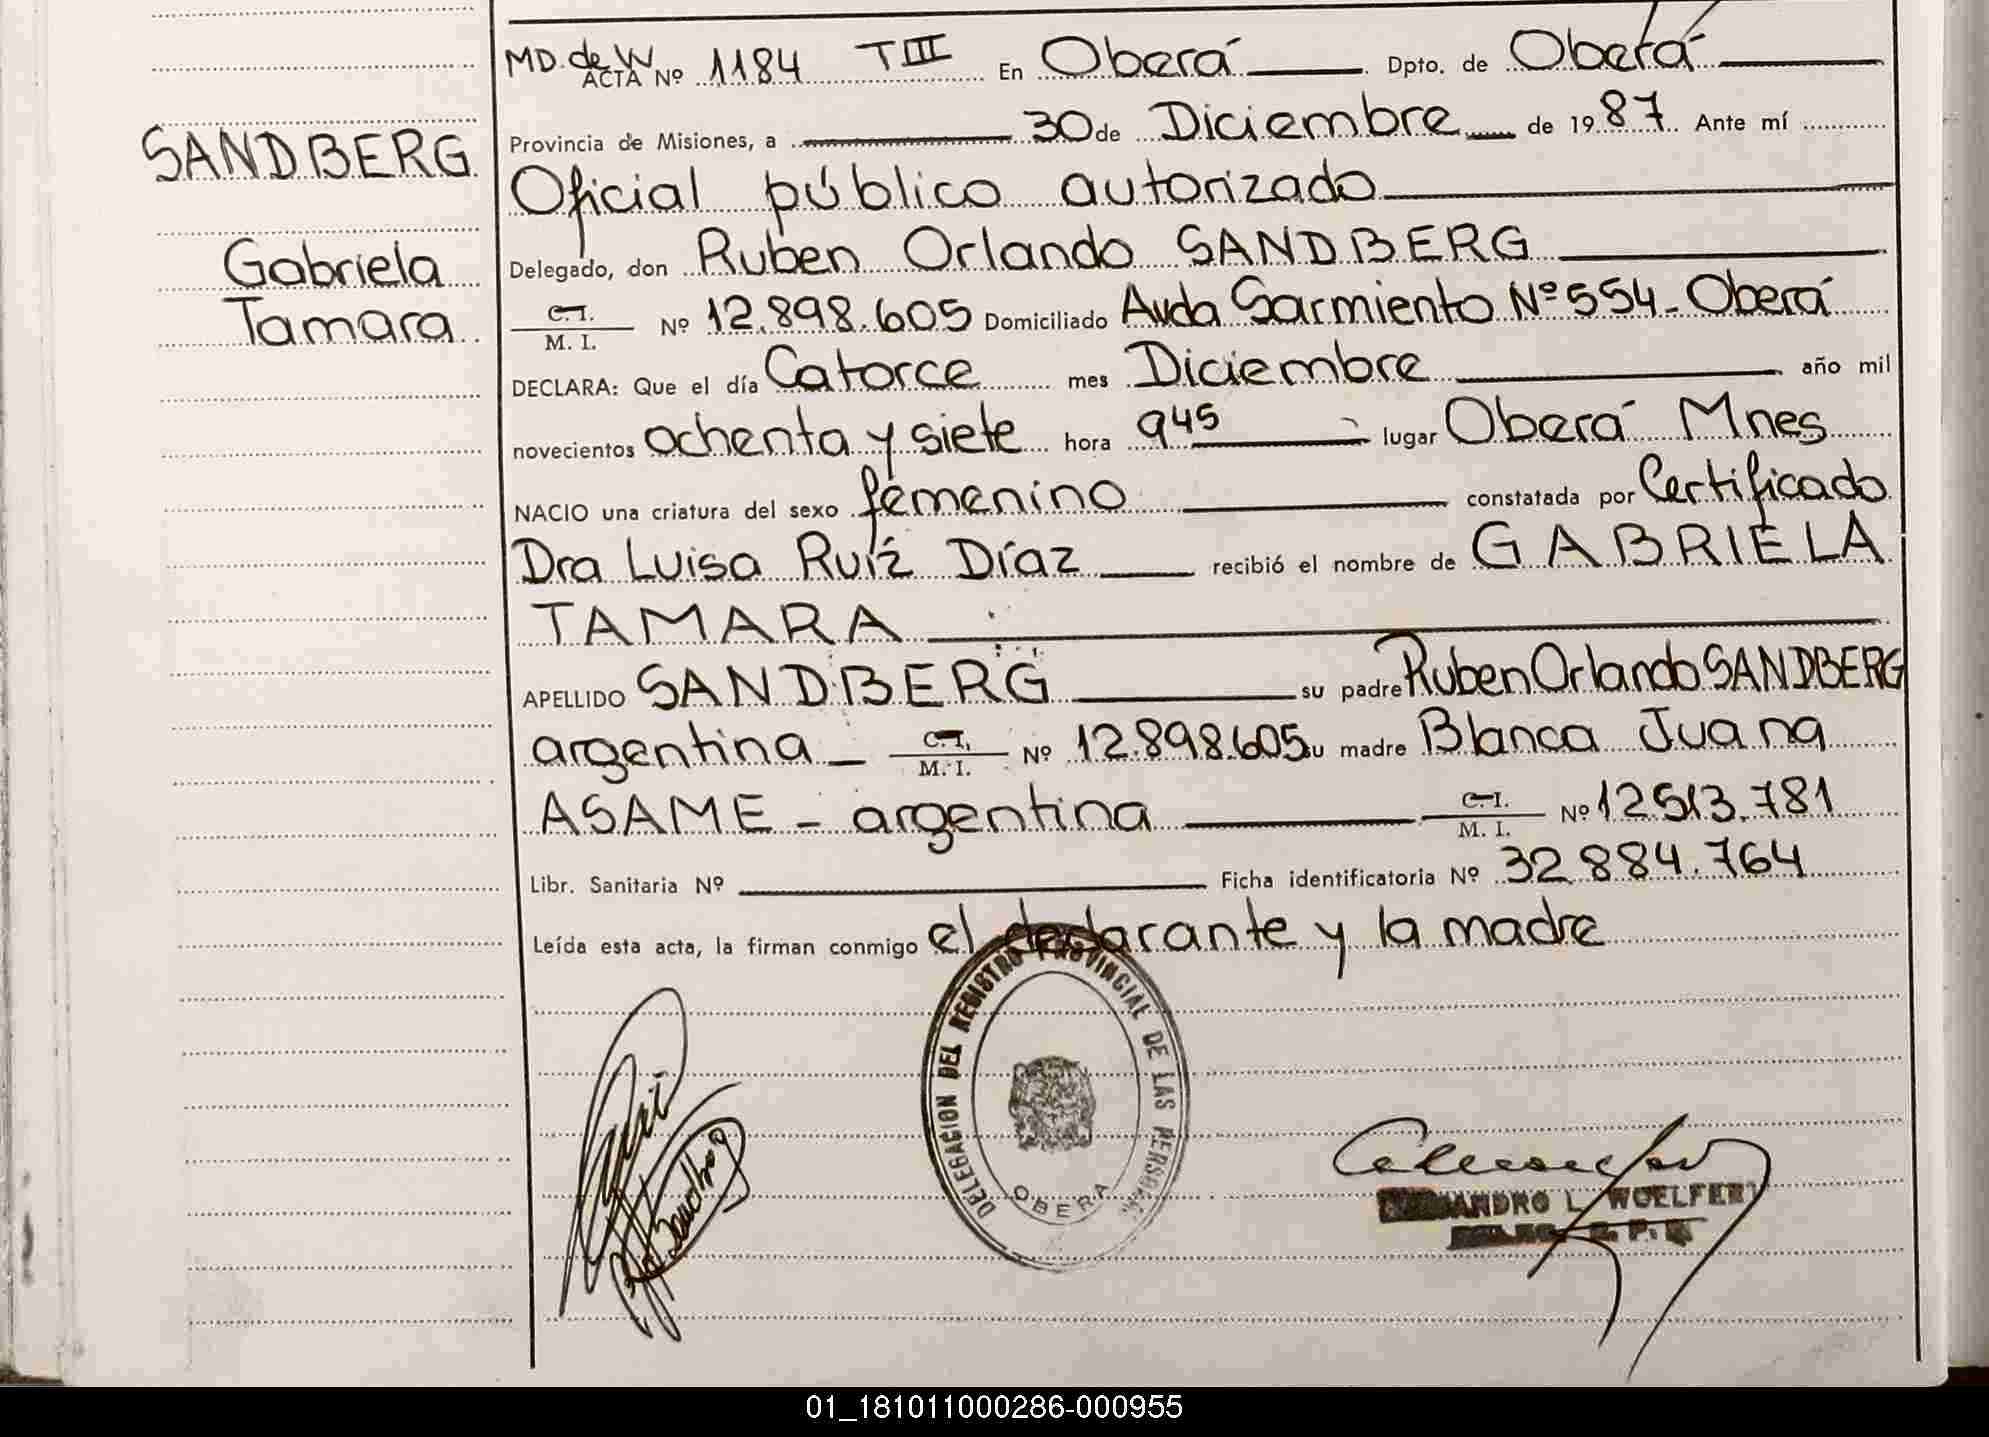 MD. de W
ACTA Nº 1184 TIII En Oberá Dpto. de Oberá
Provincia de Misiones, a 30 de Diciembre de 1987 Ante mí
Oficial público autorizado
Delegado, don Ruben Orlando SANDBERG
C.I. M. I. Nº 12.898.605 Domiciliado Avda Sarmiento Nº 554 - Oberá
DECLARA: Que el día Catorce mes Diciembre año mil
novecientos ochenta y siete hora 945 lugar Oberá Mnes
NACIO una criatura del sexo femenino constatada por Certificado
Dra Luisa Ruíz Díaz recibió el nombre de GABRIELA
TAMARA
APELLIDO SANDBERG su padre Ruben Orlando SANDBERG
argentina C.I. M. I. Nº 12.898.605 su madre Blanca Juana
ASAME - argentina C.I. M. I. Nº 12513.781
Libr. Sanitaria Nº Ficha identificatoria Nº 32.884.764
Leída esta acta, la firman conmigo el declarante y la madre
SANDBERG
Gabriela
Tamara
DELEGACION DEL REGISTRO PROVINCIAL DE LAS PERSONAS
OBERA
L. WOELFERT
01_181011000286-000955